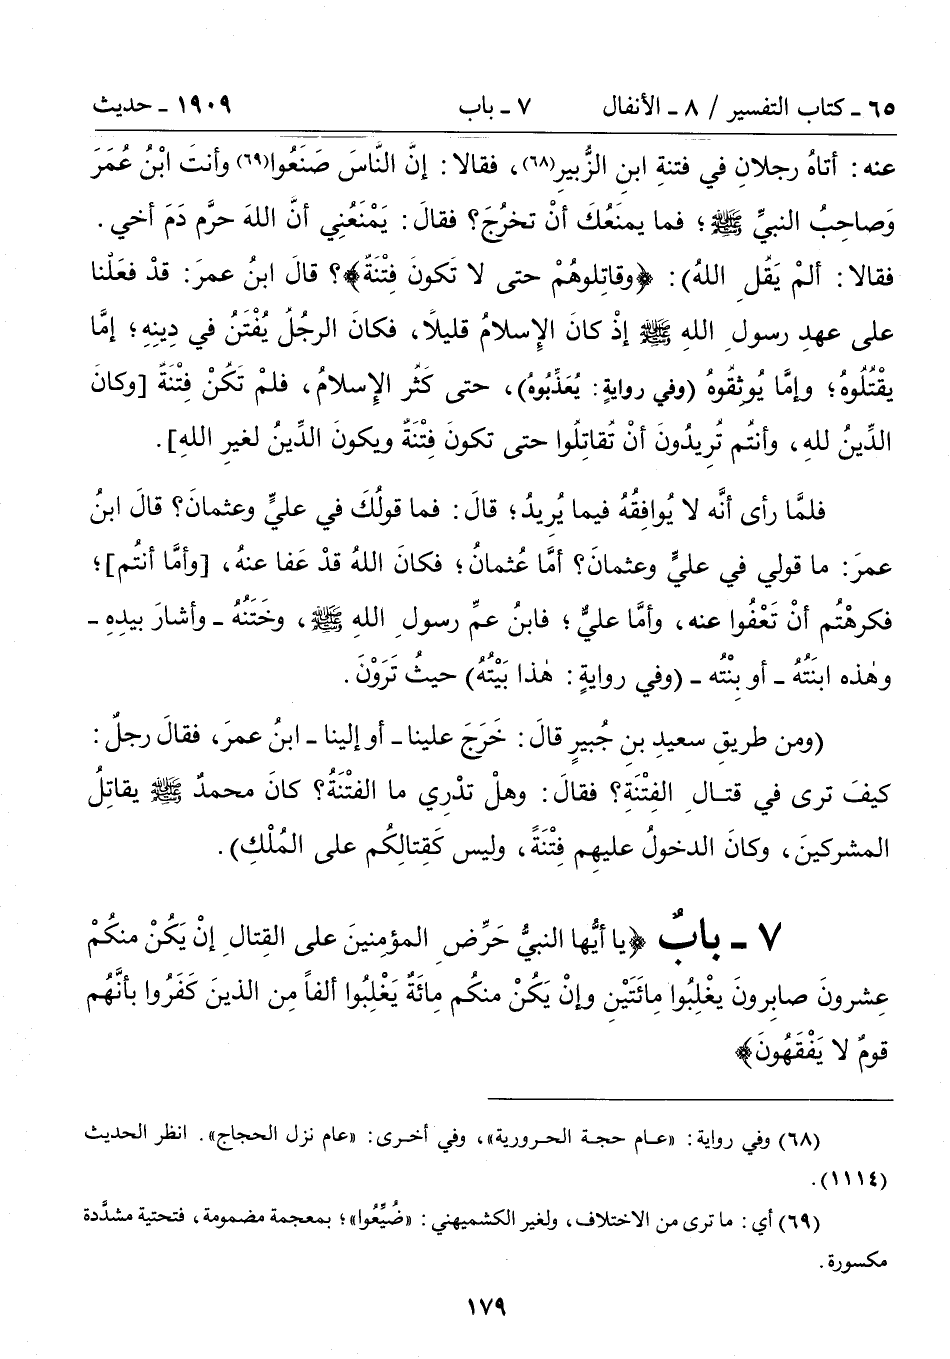 ٦٥ ـ كتاب التفسير / ٨ ـ الأنفال ٧ ـ باب ١٩٠٩ ـ حديث
عنه: أتاهُ رجلانِ في فتنةِ ابنِ الزُّبيرِ(٦٨)، فقالا: إنَّ النَّاسَ صَنَعُوا(٦٩) وأنتَ ابْنُ عُمَرَ
وَصاحِبُ النبيِّ ﷺ؛ فما يمنَعُكَ أنْ تخرُجَ؟ فقالَ: يَمْنَعُني أنَّ اللهَ حرَّم دَمَ أخي.
فقالا: ألمْ يَقُلِ اللهُ): ﴿وقاتِلوهُمْ حتى لا تَكونَ فِتْنَةٌ﴾؟ قالَ ابنُ عمرَ: قدْ فعَلْنا
على عهدِ رسولِ اللهِ ﷺ إذْ كانَ الإِسلامُ قليلًا، فكانَ الرجُلُ يُفْتَنُ في دِينِه؛ إمَّا
يقْتُلُوهُ؛ وإمَّا يُوثِقُوهُ (وفي روايةٍ: يُعَذِّبُوهُ)، حتى كَثُر الإِسلامُ، فلمْ تَكُنْ فِتْنَةٌ [وكانَ
الدِّينُ للهِ، وأنتُم تُرِيدُونَ أنْ تُقاتِلُوا حتى تكونَ فِتْنَةٌ ويكونَ الدِّينُ لغيرِ اللهِ].
فلمَّا رأى أنَّه لا يُوافِقُهُ فيما يُرِيدُ؛ قالَ: فما قولُكَ في عليٍّ وعثمانَ؟ قالَ ابنُ
عمرَ: ما قولي في عليٍّ وعثمانَ؟ أمَّا عُثمانُ؛ فكانَ اللهُ قدْ عَفا عنهُ، [وأمَّا أنتُم]؛
فكرهْتُم أنْ تَعْفُوا عنه، وأمَّا عليٌّ؛ فابنُ عمِّ رسولِ اللهِ ﷺ، وخَتَنُهُ ـ وأشارَ بيدِهِ ـ
وهٰذه ابنَتُهُ ـ أو بِنْتُه ـ (وفي روايةٍ: هٰذا بَيْتُهُ) حيثُ تَرَوْنَ.
(ومن طريقِ سعيدِ بنِ جُبيرٍ قالَ: خَرَجَ علينا ـ أو إلينا ـ ابنُ عمرَ، فقالَ رجلٌ:
كيفَ ترى في قتـالِ الفِتْنَةِ؟ فقالَ: وهلْ تدْرِي ما الفتْنَةُ؟ كانَ محمدٌ ﷺ يقاتِلُ
المشركينَ، وكانَ الدخولُ عليهِم فِتْنَةً، وليس كَقِتالِكُم على المُلْكِ).
٧ ـ بابٌ ﴿يا أيُّها النبيُّ حَرِّضِ المؤمنينَ على القِتالِ إنْ يَكُنْ منكُمْ
عِشرونَ صابِرونَ يغْلِبُوا مِائَتَيْنِ وإنْ يَكُنْ منكُم مِائَةٌ يَغْلِبُوا ألفاً مِن الذينَ كَفَرُوا بأنَّهُم
قومٌ لا يَفْقَهُونَ﴾
(٦٨) وفي رواية: «عـام حجـة الحـرورية»، وفي أخـرى: «عام نزل الحجاج». انظر الحديث
(١١١٤).
(٦٩) أي: ما ترى من الاختلاف، ولغير الكشميهني: «ضُيِّعُوا»؛ بمعجمة مضمومة، فتحتية مشدَّدة
مكسورة.
١٧٩